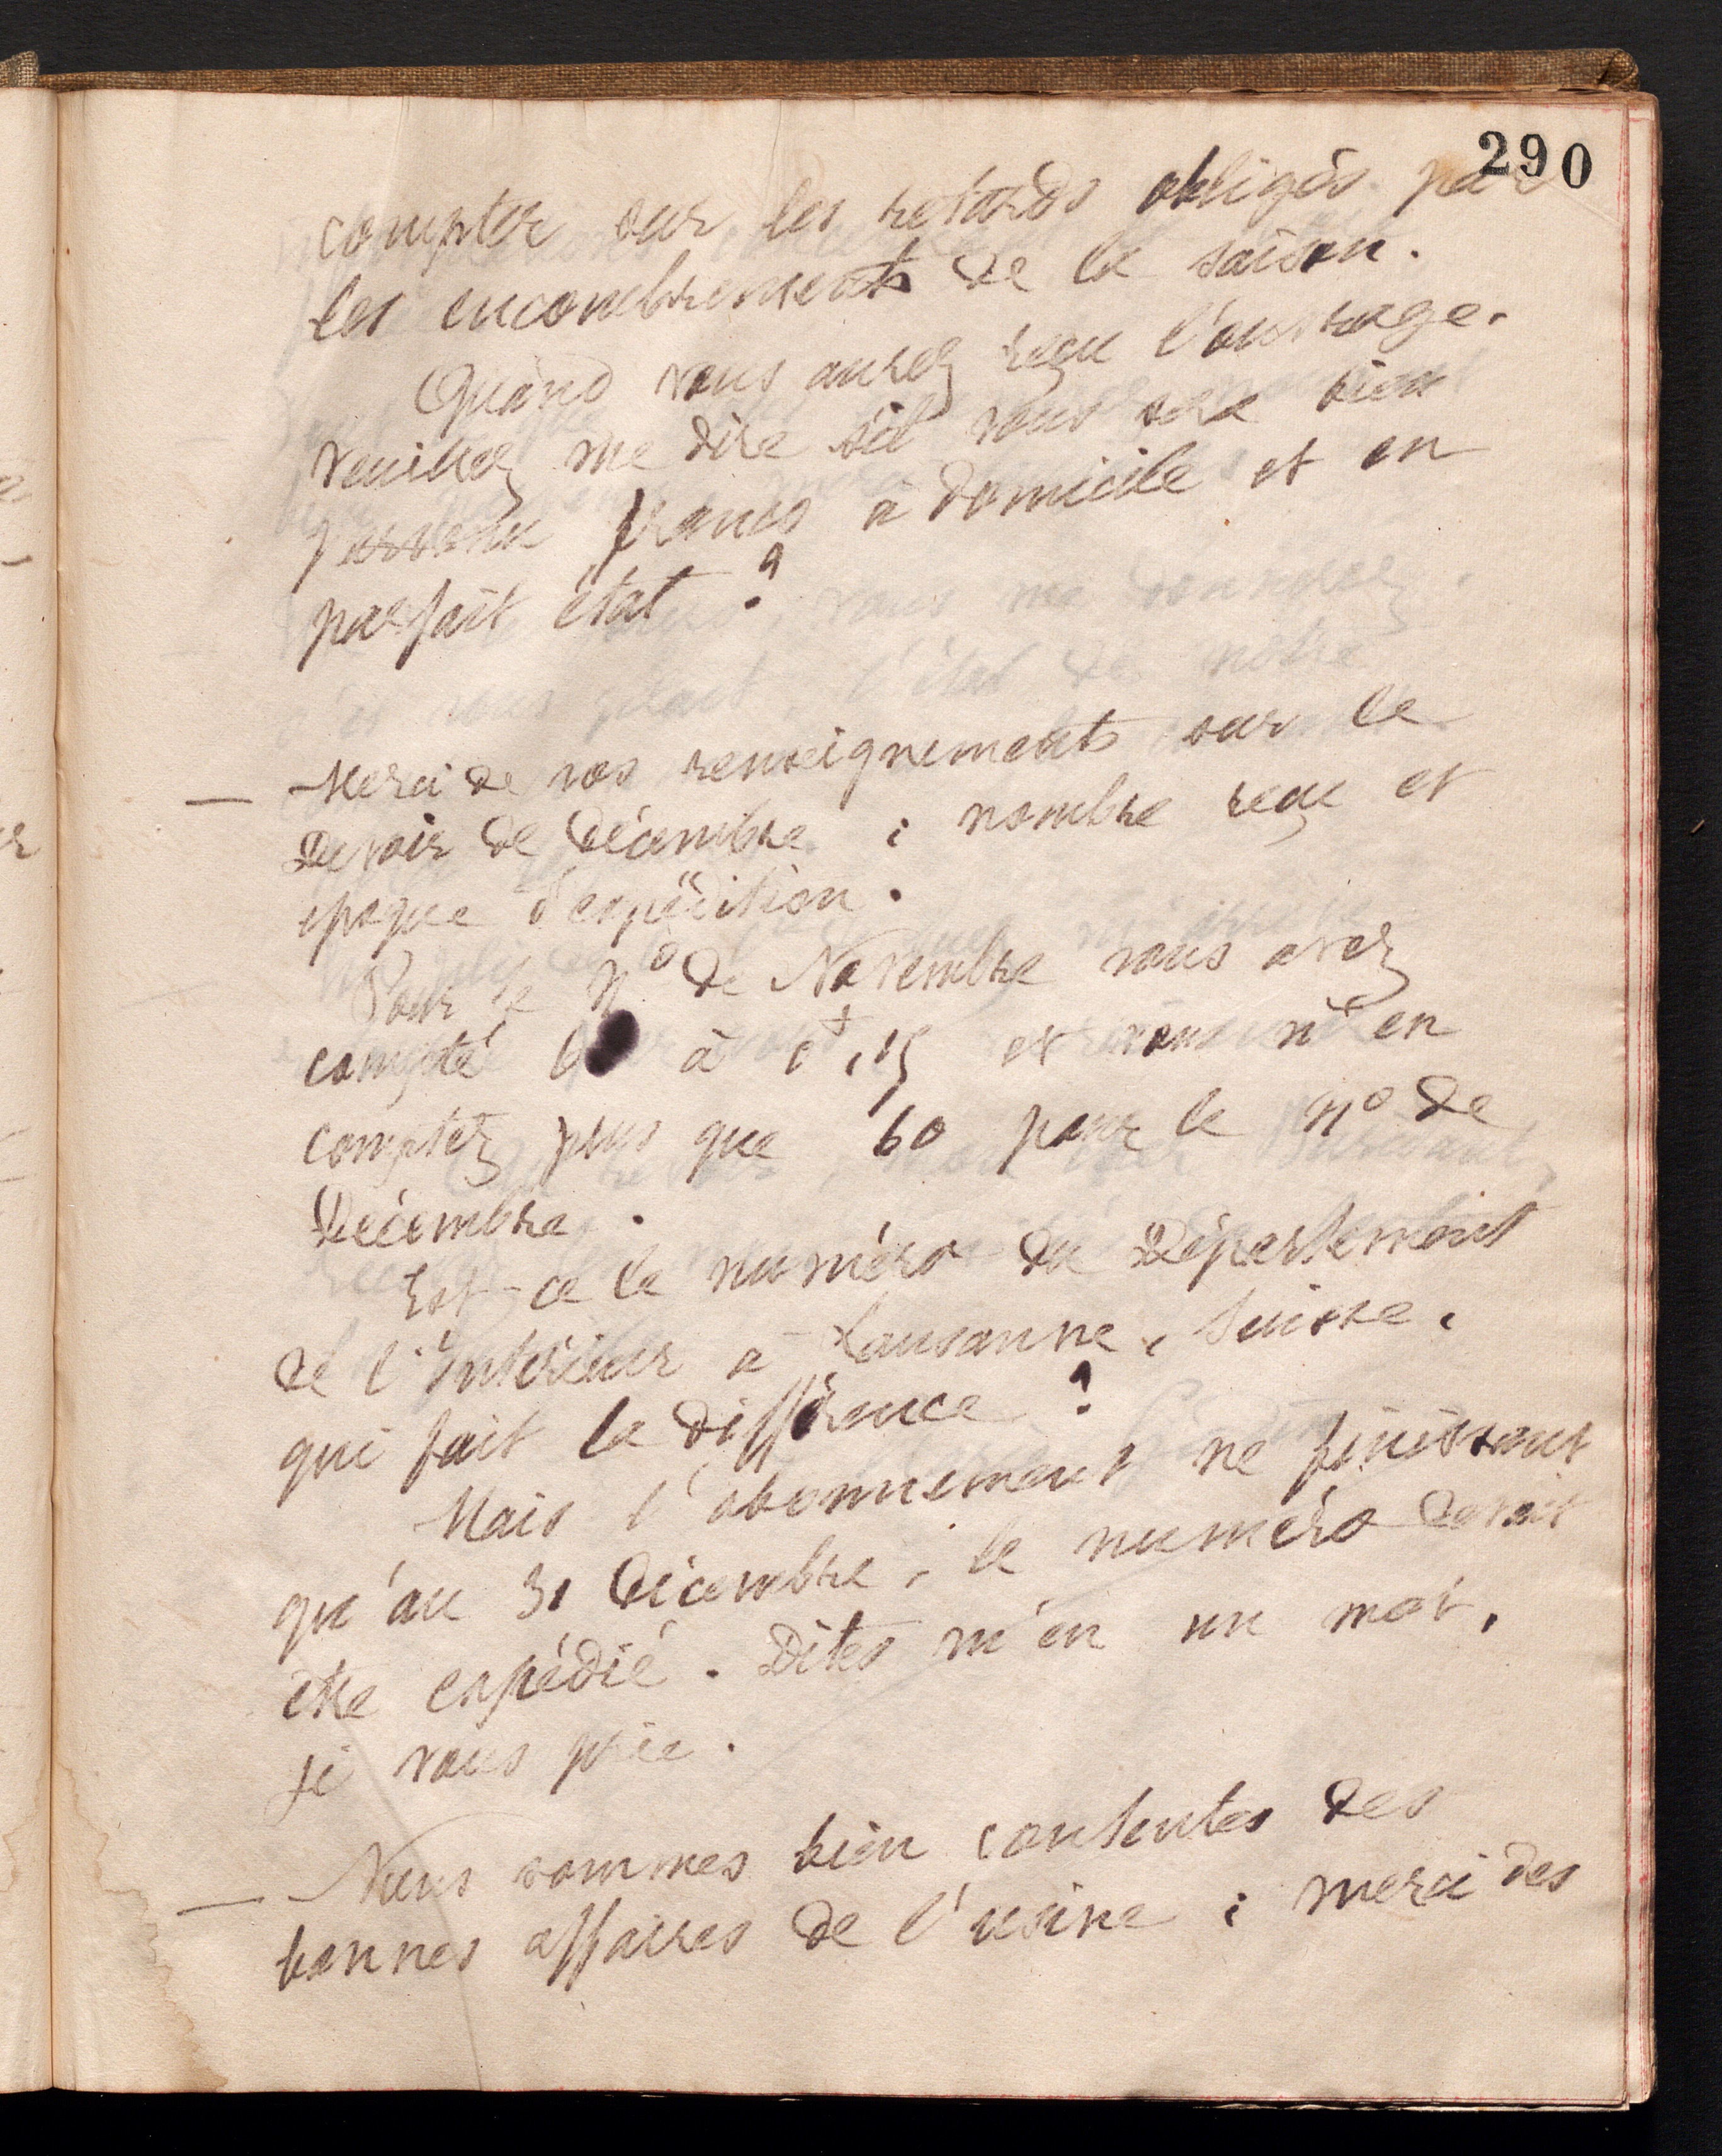 290
compter sur les retards obligés par
les encombrements de la saison.
Quand vous aurez reçu l'ouvrage.
veuillez me dire s'il vous sera bien
parvenu franco à domicile et en
parfait état ?
— Merci de vos renseignements sur le
Devoir de Décembre ; nombre reçu et
époque d'expédition.
Pour le Nº de Novembre vous avez
compté à 0f,15 et vous n'en
comptez plus que 60 pour le nº de
Décembre.
Est-ce le numéro du Département
de l'Intérieur à Lausanne, Suisse,
qui fait la différence ?
Mais l'abonnement ne finissant
qu'au 31 Décembre, le numéro devait
être expédié. Dites m'en un mot,
je vous prie.
— Nous sommes bien contentes des
bonnes affaires de l'usine ; merci des